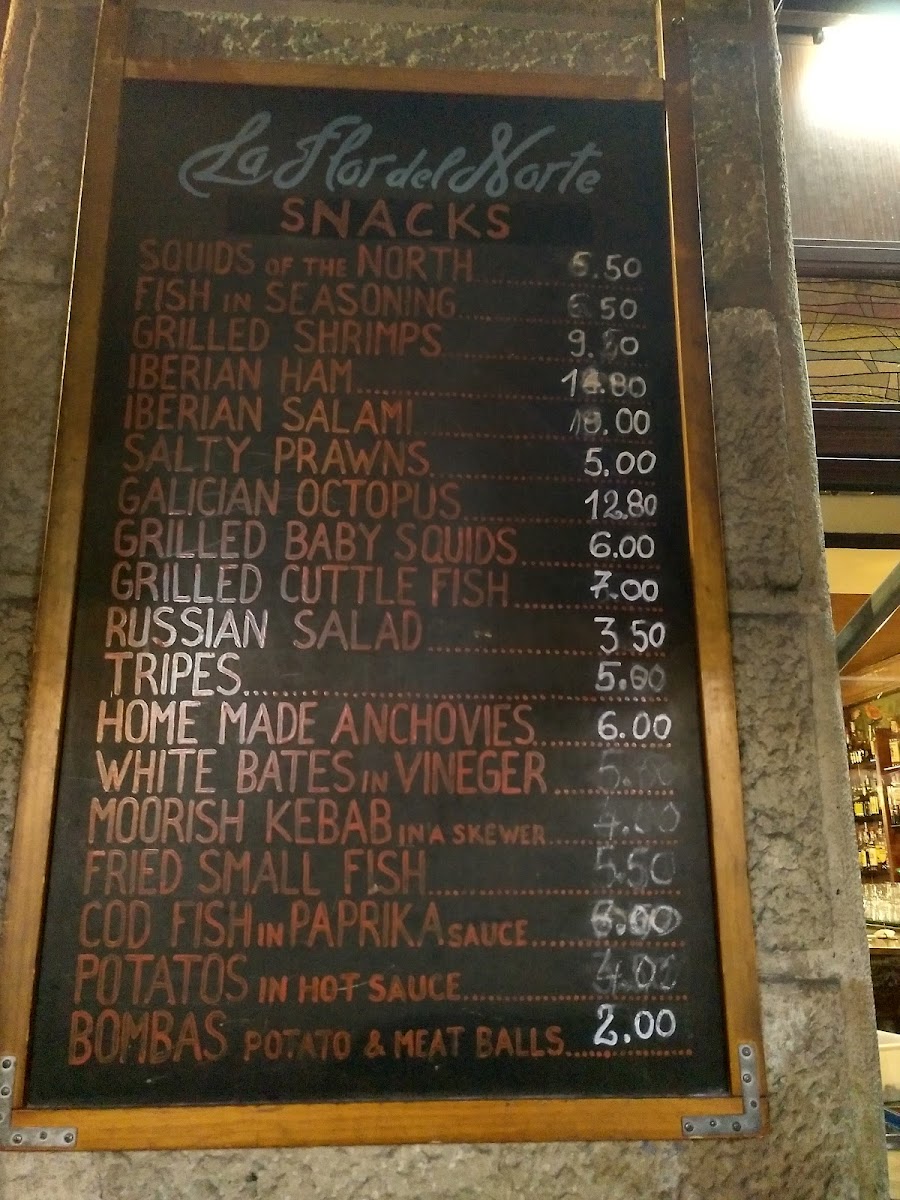 La Flor del Norte
SNACKS
SQUIDS OF THE NORTH 6.50
FISH IN SEASONING 6.50
GRILLED SHRIMPS
IBERIAN HAM
IBERIAN SALAMI
SALTY PRAWNS 5.00
GALICIAN OCTOPUS 12.80
GRILLED BABY SQUIDS 6.00
GRILLED CUTTLE FISH 7.00
RUSSIAN SALAD 3.50
TRIPES 5.00
HOME MADE ANCHOVIES 6.00
WHITE BATES IN VINEGER
MOORISH KEBAB IN A SKEWER
FRIED SMALL FISH 5.50
COD FISH IN PAPRIKA SAUCE
POTATOS IN HOT SAUCE
BOMBAS POTATO & MEAT BALLS 2.00